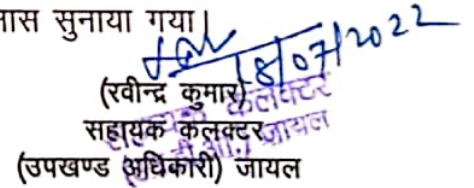 नास सुनाया गया।
18/07/2022
(रवीन्द्र कुमार)
सहायक कलक्टर
(उपखण्ड अधिकारी) जायल